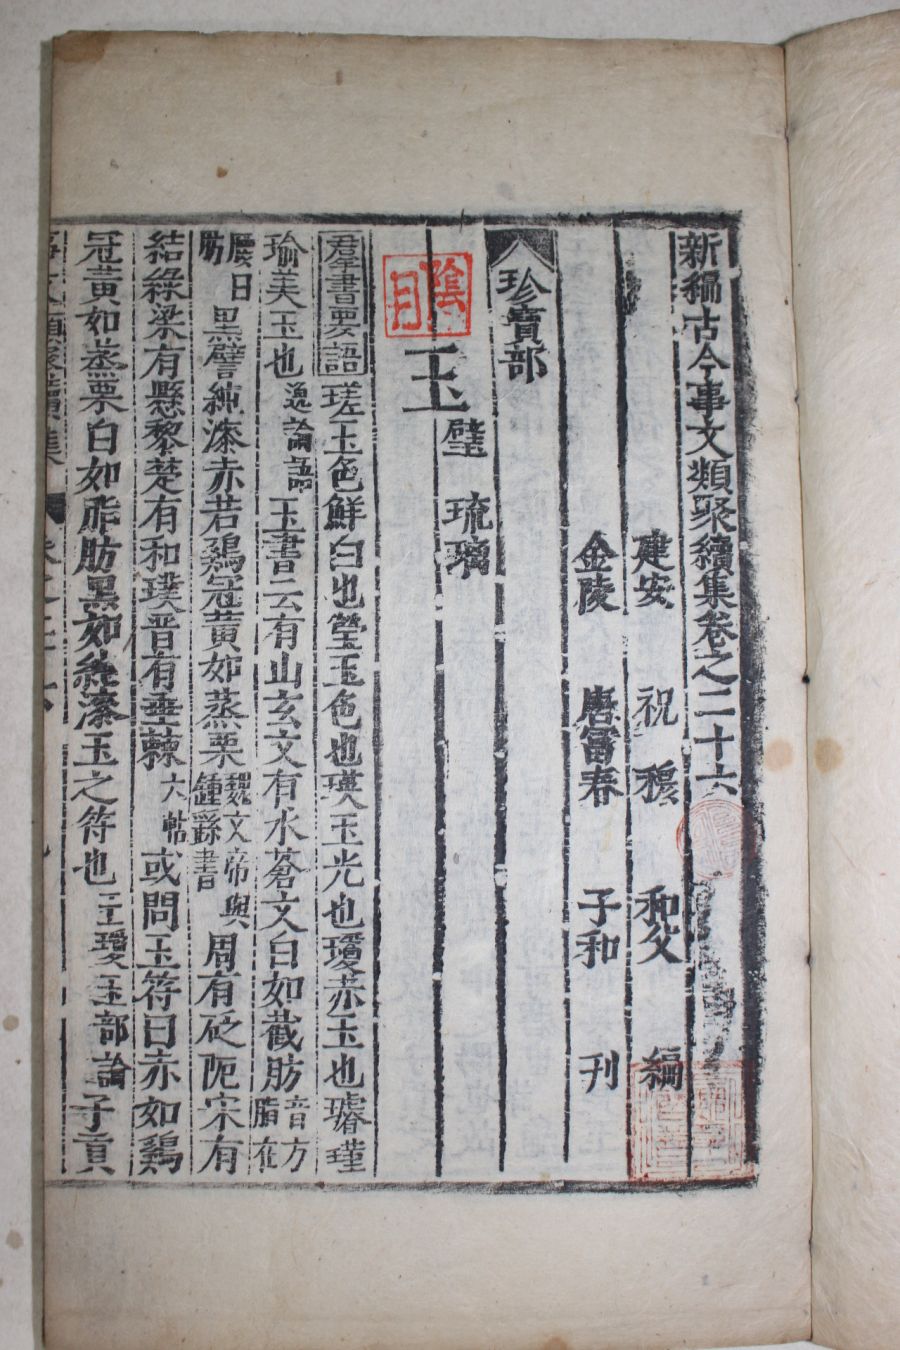 新編古今事文類聚續集卷之二十六
建安 祝穆 和父 編
金陵 唐富春 子和 刊
珍寶部
璧 琉璃
玉
群書要語 瑳玉色鮮白也瑩玉色也瑛玉光也瓊赤玉也璿瑾
瑜美玉也逸論語玉書云有山玄文有水蒼文白如截肪音方脂在
腰曰肪黑譬純漆赤若鷄冠黄如蒸栗魏文帝與鍾繇書周有砥阨宋有
結綠梁有懸黎楚有和璞晋有垂棘六帖或問玉符曰赤如鷄
冠黄如蒸栗白如脂肪黑如純漆玉之符也王逸玉部論子貢
陰月